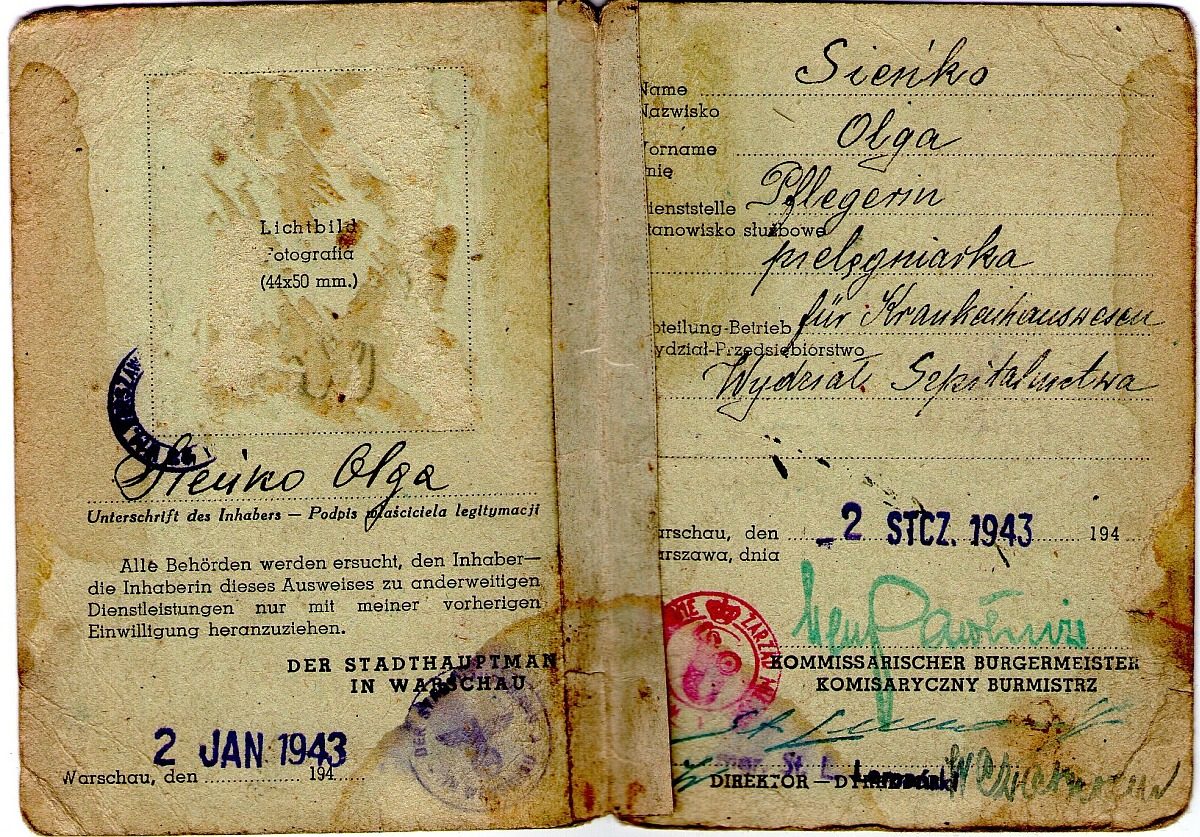 Lichtbild
Fotografia
(44x50 mm.)
Sieńko Olga
Unterschrift des Inhabers — Podpis właściciela legitymacji
Alle Behörden werden ersucht, den Inhaber—
die Inhaberin dieses Ausweises zu anderweitigen
Dienstleistungen nur mit meiner vorherigen
Einwilligung heranzuziehen.
DER STADTHAUPTMAN
IN WARSCHAU
2 JAN 1943
Warschau, den 194
Sieńko
Name
Nazwisko
Olga
Vorname
Imię
Pflegerin
Dienststelle
Stanowisko służbowe
pielęgniarka
Abteilung-Betrieb für Krankenhauswesen
Wydział-Przedsiębiorstwo
Wydział Szpitalnictwa
Warschau, den 2 STCZ. 1943 194
Warszawa, dnia
ZARZĄD
KOMMISSARISCHER BÜRGERMEISTER
KOMISARYCZNY BURMISTRZ
DIREKTOR —